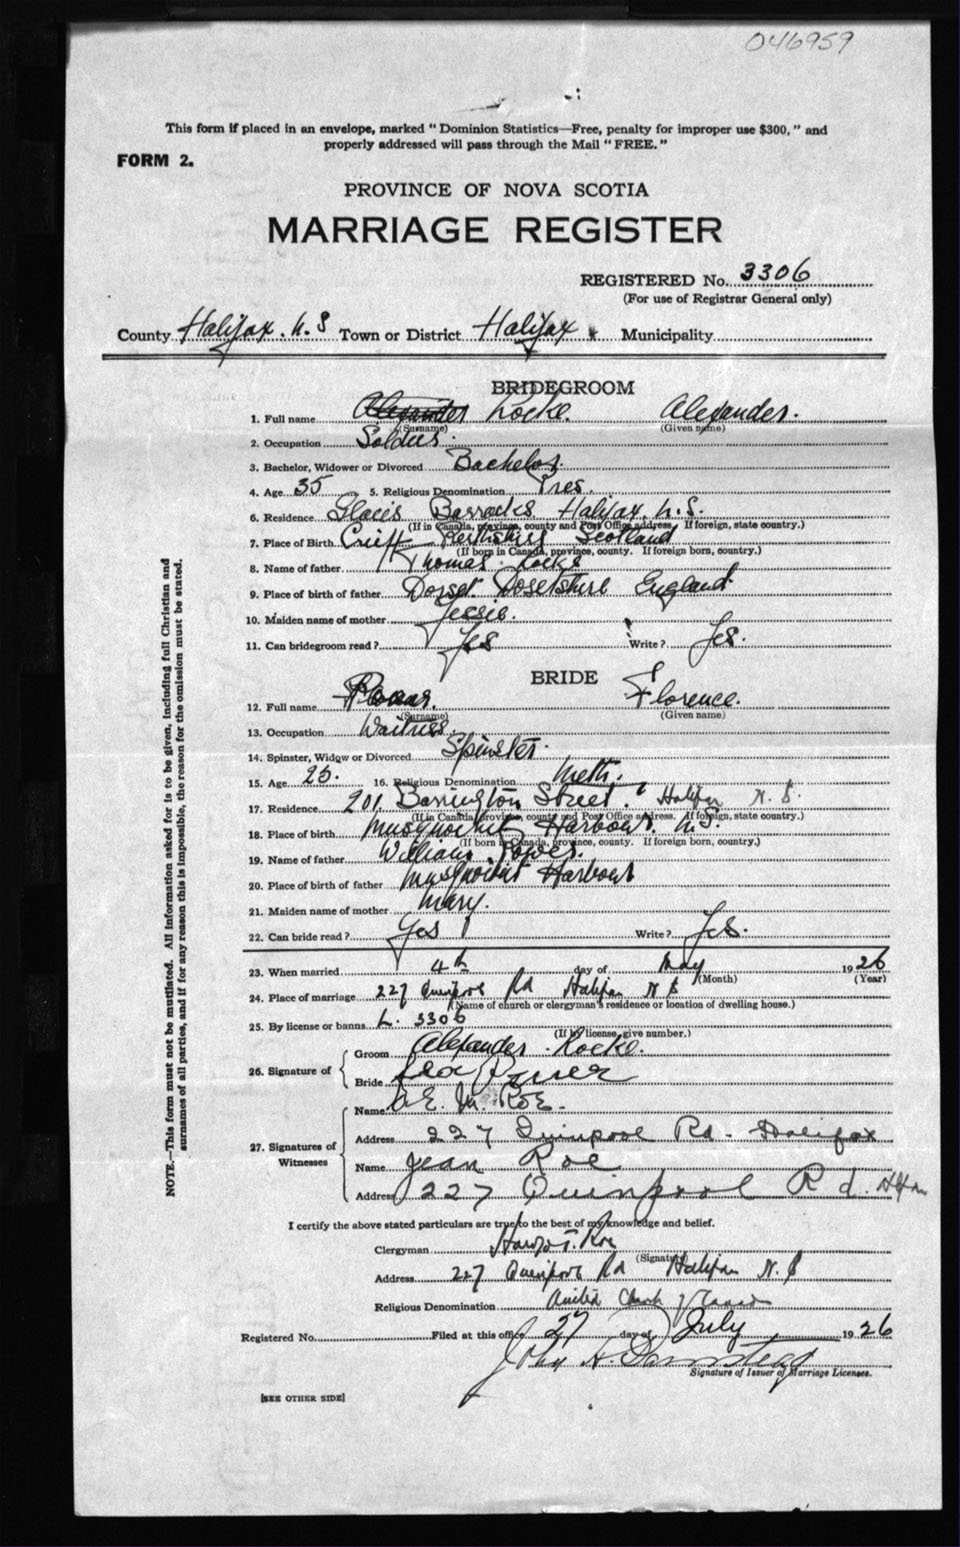 046959
This form if placed in an envelope, marked "Dominion Statistics—Free, penalty for improper use $300," and
properly addressed will pass through the Mail "FREE."
FORM 2.
PROVINCE OF NOVA SCOTIA
MARRIAGE REGISTER
REGISTERED No. 3306
(For use of Registrar General only)
County Halifax. N.S Town or District Halifax Municipality
BRIDEGROOM
1. Full name Alexander Locke. Alexander.
(Surname) (Given name)
2. Occupation Soldier.
3. Bachelor, Widower or Divorced Bachelor.
4. Age 35 5. Religious Denomination Pres.
6. Residence Glacis Barracks Halifax. N.S.
(If in Canada, province, county and Post Office address. If foreign, state country.)
7. Place of Birth Crieff Perthshire Scotland
(If born in Canada, province, county. If foreign born, country.)
8. Name of father Thomas Locke
9. Place of birth of father Dorset Dorsetshire England.
10. Maiden name of mother Jessie.
11. Can bridegroom read? Yes Write? Yes.
BRIDE
12. Full name Florence.
(Surname) (Given name)
13. Occupation Waitress
14. Spinster, Widow or Divorced Spinster.
15. Age 25. 16. Religious Denomination Meth.
17. Residence 201 Barrington Street. Halifax N.S.
(If in Canada province, county and Post Office address. If foreign, state country.)
18. Place of birth Musquodoit Harbour. N.S.
(If born in Canada, province, county. If foreign born, country.)
19. Name of father William Power.
20. Place of birth of father Musquodoit Harbour
21. Maiden name of mother Mary.
22. Can bride read? Yes Write? Yes.
23. When married 4th day of May 1926
(Month) (Year)
24. Place of marriage 227 Quinpool Rd Halifax N S
(Name of church or clergyman's residence or location of dwelling house.)
25. By license or banns L. 3306
(If by license, give number.)
26. Signature of Groom Alexander Locke.
Bride Power
27. Signatures of Witnesses
Name A E. M. Roe.
Address 227 Quinpool Rd. Halifax
Name Jean Roe
Address 227 Quinpool Rd. Hfx
I certify the above stated particulars are true to the best of my knowledge and belief.
Clergyman Roe
(Signature)
Address 227 Quinpool Rd Halifax N. S
Religious Denomination United Church of Canada
Registered No. Filed at this office 27 day of July 1926
John H.
Signature of Issuer of Marriage Licenses.
[SEE OTHER SIDE]
NOTE.—This form must not be mutilated. All information asked for is to be given, including full Christian and
surnames of all parties, and if for any reason this is impossible, the reason for the omission must be stated.